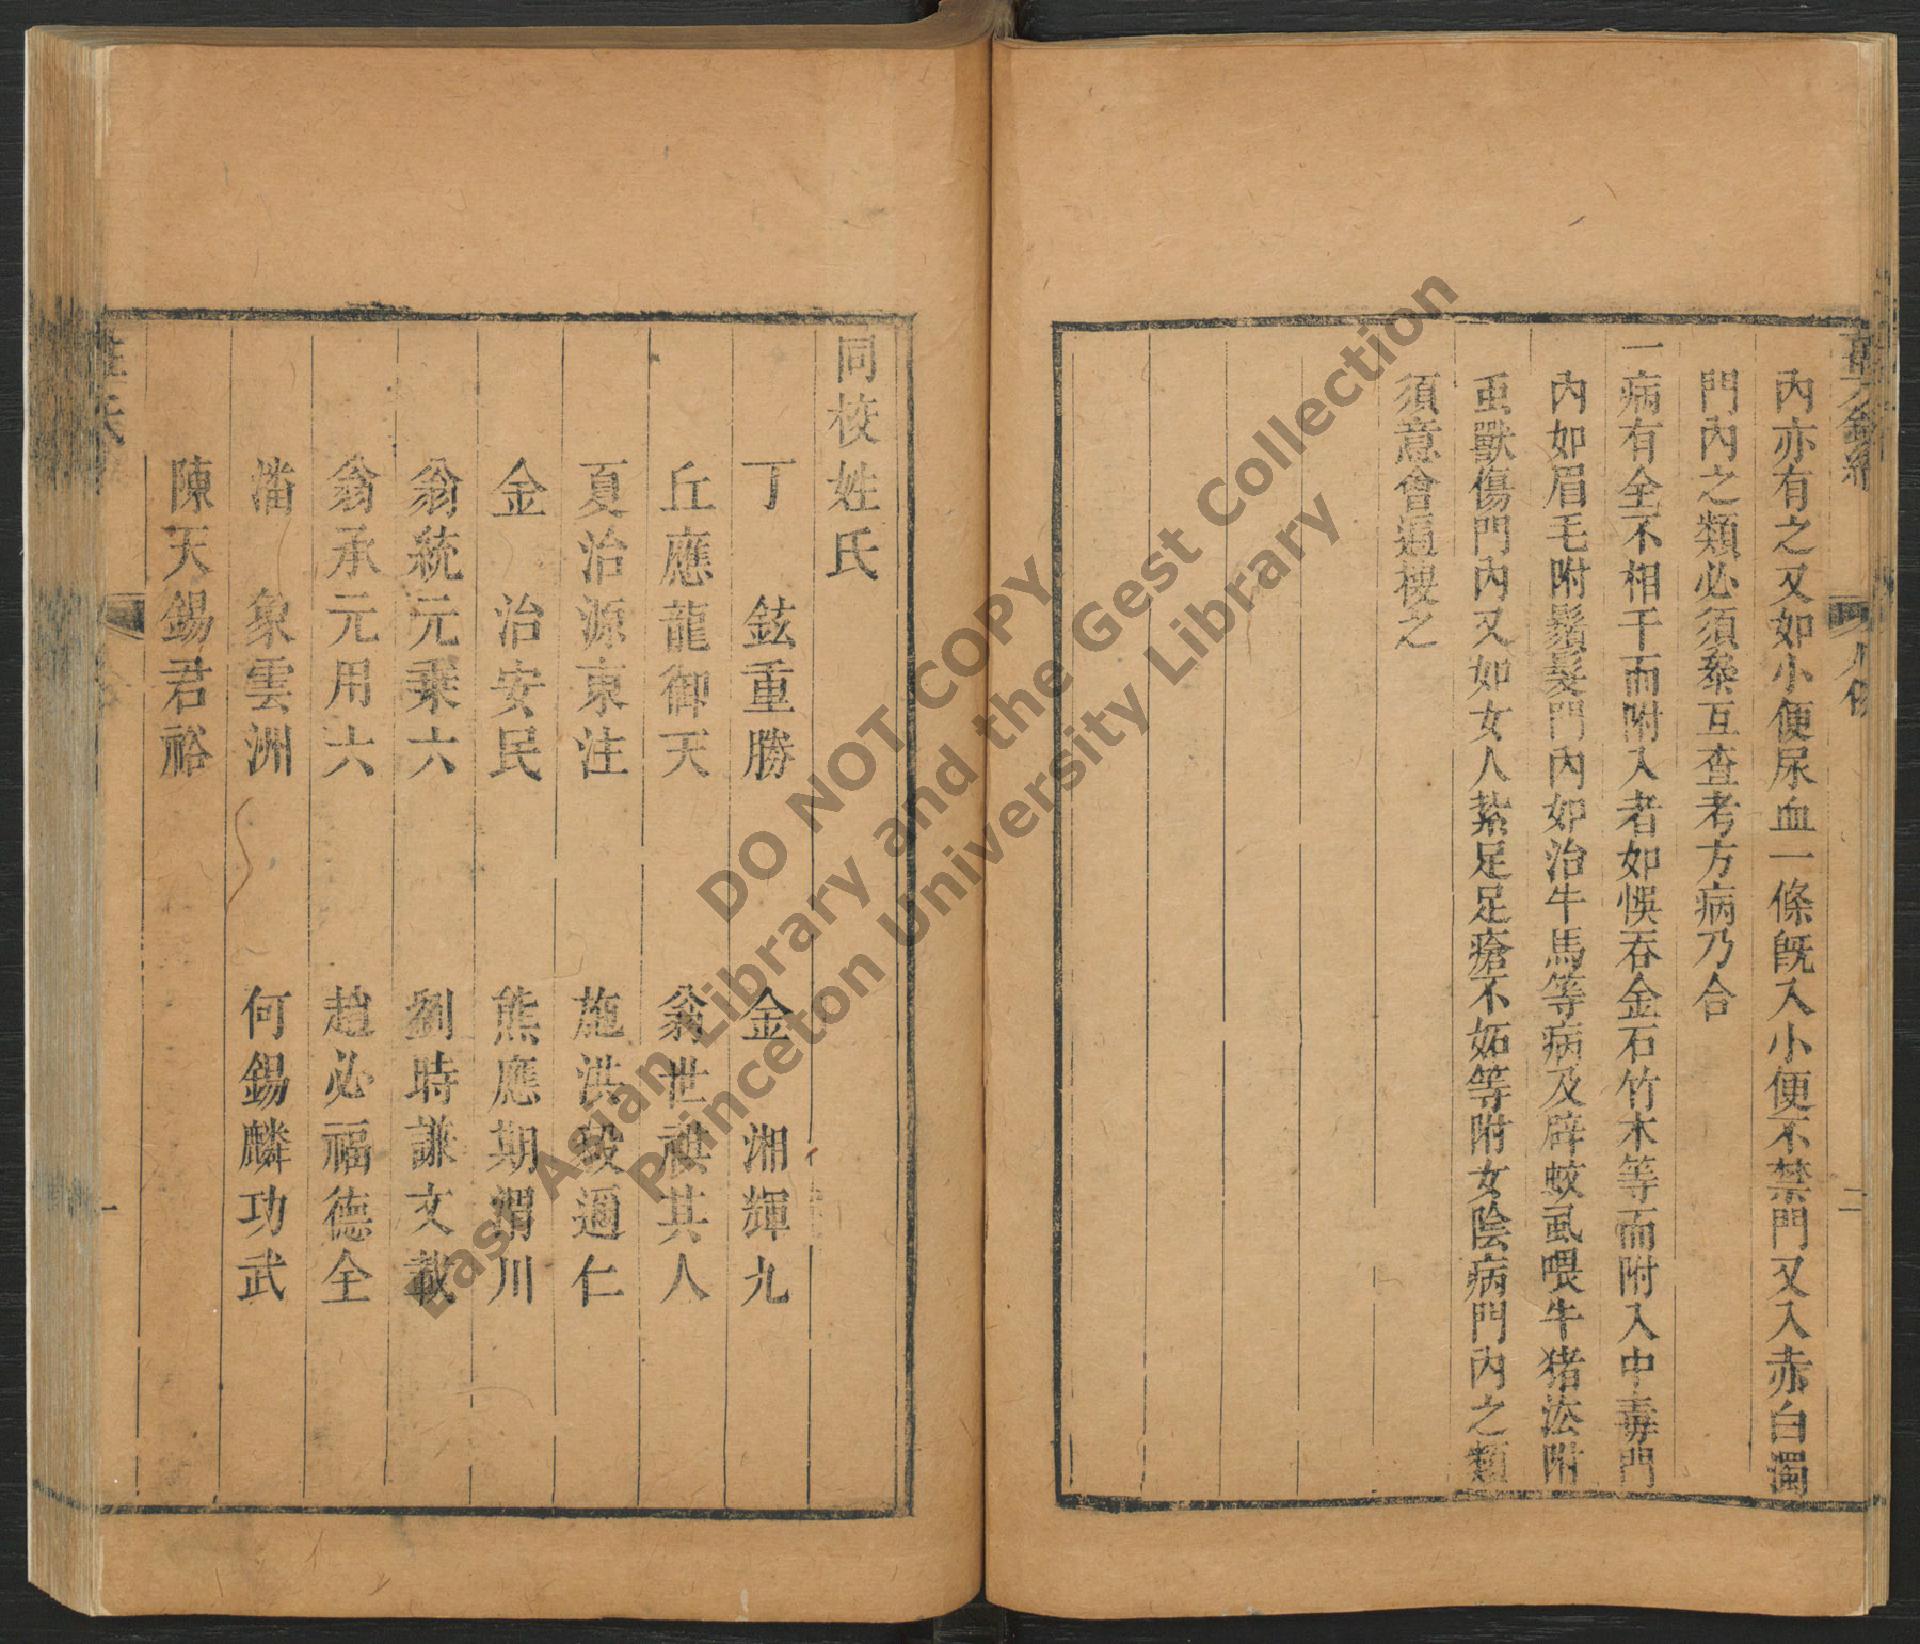 內亦有之又如小便尿血一條旣入小便不禁門又入赤白濁
門內之類必須叅互查考方病乃合
一病有全不相干而附入者如悞吞金石竹木等而附入中毒門
內如眉毛附鬚髮門內如治牛馬等病及辟蚊虱喂牛猪法附
䖝獸傷門內又如女人紮足足瘡不妬等附女陰病門內之類
須意會通搜之
二
同校姓氏
丁 鉉重勝 金 湘輝九
丘應龍御天 翁世祺其人
夏治源東注 施洪毅逈仁
金 治安民 熊應期渭川
翁統元乗六 劉時謙文載
翁承元用六 趙必福德全
潘 象雲洲 何錫麟功武
陳天錫君裕
一
DO NOT COPY
East Asian Library and the Gest Collection
Princeton University Library